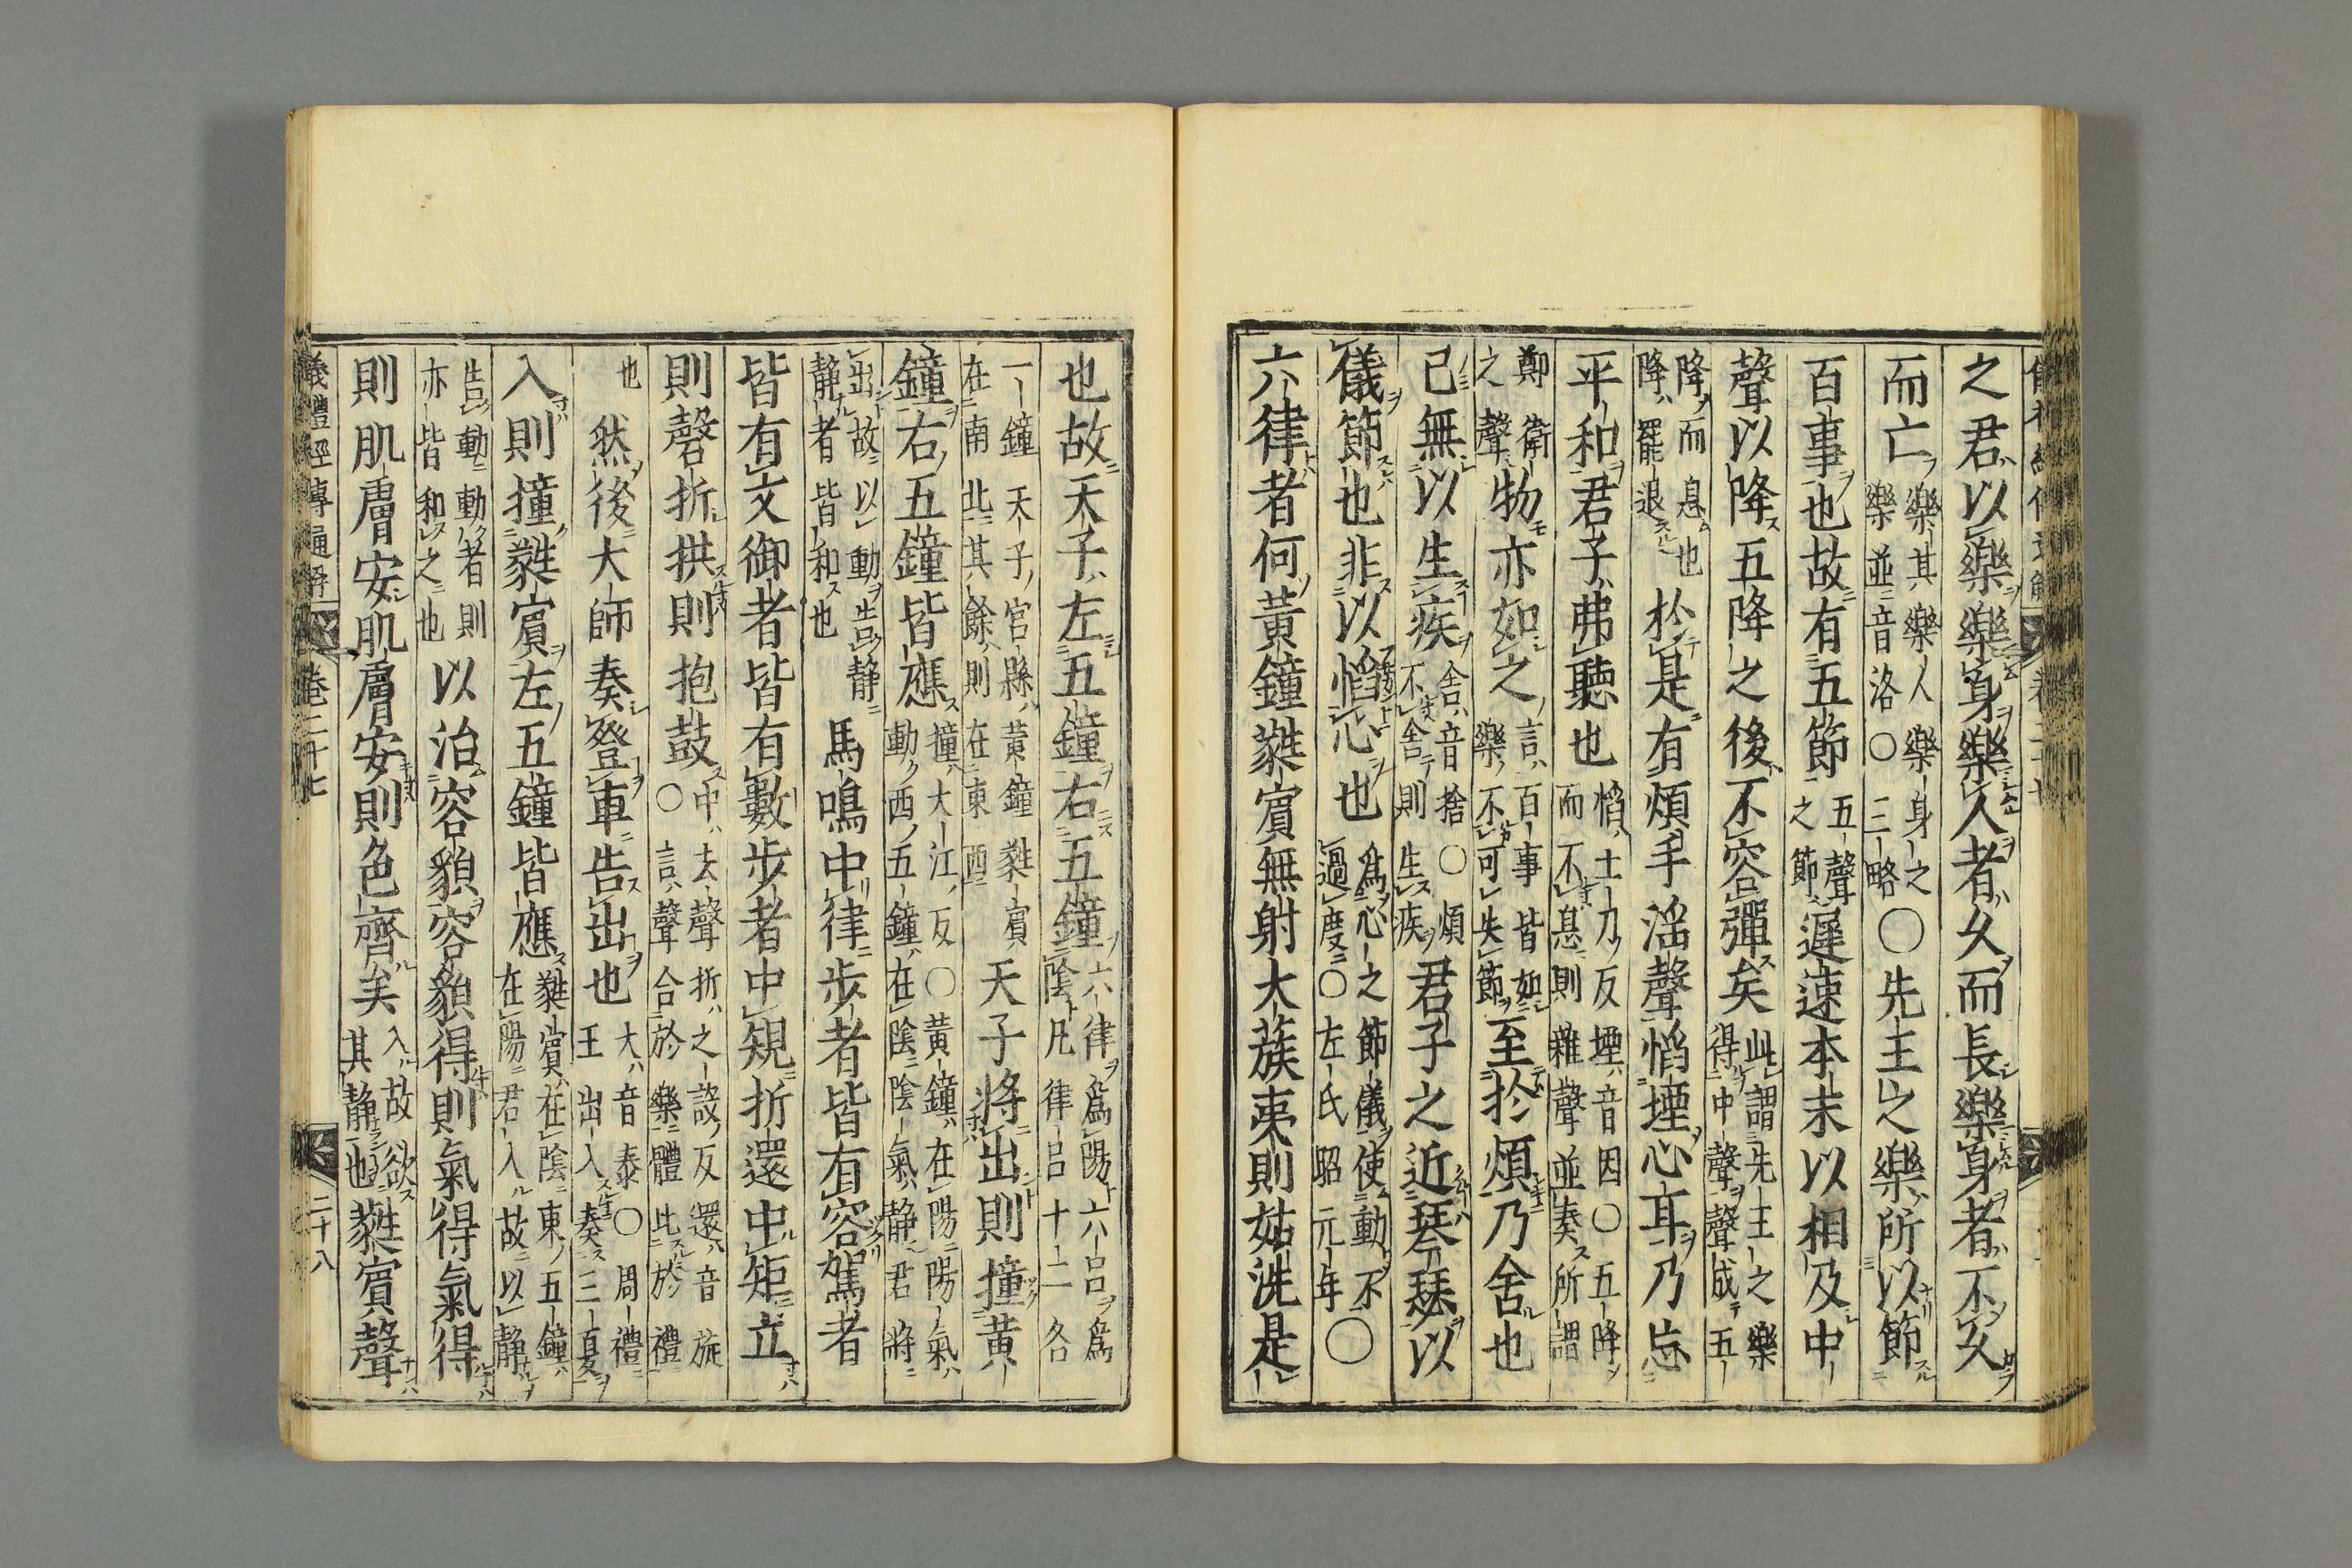 之君以樂樂身樂人者久而長樂身者不久
而亡樂其樂人樂身之樂並音洛○三略○先王之樂所以節
百事也故有五節五聲之節遲速本末以相及中
聲以降五降之後不容彈矣此謂先王之樂得中聲聲成五
降而息也降罷退於是有煩手淫聲慆堙心耳乃忘
平和君子弗聽也慆土刀反堙音因○五降而不息則雜聲並奏所謂
鄭衛之聲物亦如之言百事皆如樂不可失節至於煩乃舍也
已無以生疾舍音捨○煩不舍則生疾君子之近琴瑟以
儀節也非以慆心也為心之節儀使動不過度○左氏昭元年○
六律者何黃鐘蕤賓無射大蔟夷則姑洗是
也故天子左五鐘右五鐘六律為陽六呂為陰凡律呂十二各
一鐘天子宮縣黃鐘蕤賓在南北其餘則在東西天子將出則撞黃
鐘右五鐘皆應撞大江反○黃鐘在陽陽氣動西五鐘在陰陰氣靜君將
出故以動告靜靜者皆和也馬鳴中律步者皆有容駕者
皆有文御者皆有數步者中規折還中矩立
則磬折拱則抱鼓中去聲折之設反還音旋○言聲合於樂體此於禮
也然後大師奏登車告出也大音泰○周禮王出入奏三夏
入則撞蕤賓左五鐘皆應蕤賓在陰東五鐘在陽君入故以靜
告動動者則亦皆和之也以治容貌容貌得則氣得氣得
則肌膚安肌膚安則色齊矣入故欲其靜也蕤賓聲
儀禮經傳通解 卷二十七 二十八